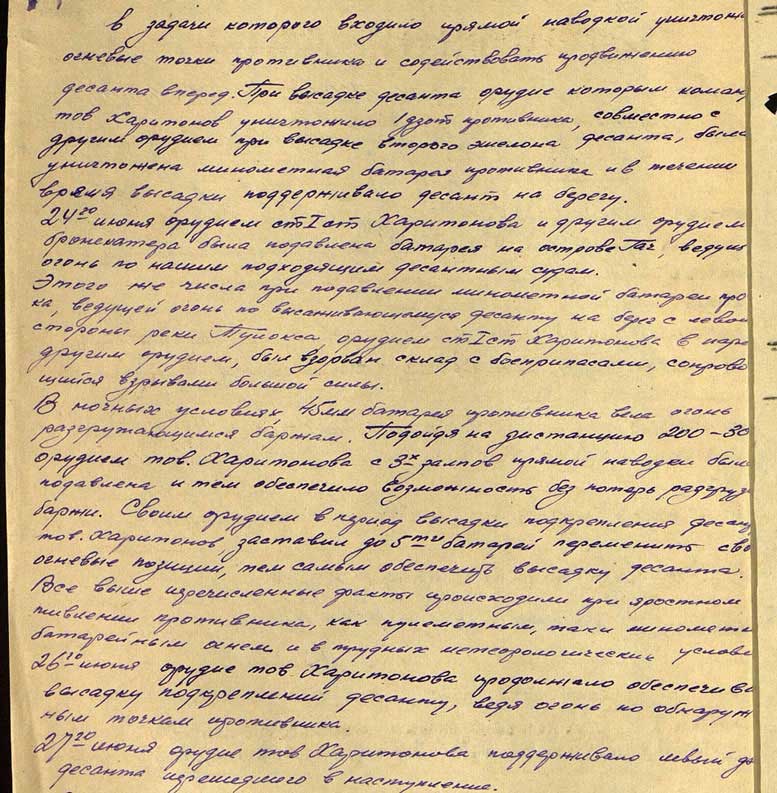 в задачи которого входило прямой наводкой уничтожа
огневые точки противника и содействовать продвижению
десанта вперед. При высадке десанта орудие которым коман
тов Харитонов уничтожило 1 дзот противника, совместно с
другим орудием при высадке второго эшелона десанта, была
уничтожена минометная батарея противника и в течении
время высадки поддерживало десант на берегу.
24го июня орудием ст I ст Харитонова и другим орудием
бронекатера была подавлена батарея на острове Гач, ведущ
огонь по нашим подходящим десантным судам.
Этого же числа при подавлении минометной батареи про
ка, ведущей огонь по высаживающемуся десанту на берег с левой
стороны реки Тулокса, орудием ст I ст Харитонова в паре
другим орудием, был взорван склад с боеприпасами, сопрово
щийся взрывами большой силы.
В ночных условиях, 45мм батарея противника вела огонь
разгружающимся баржам. Подойдя на дистанцию 200-30
орудием тов. Харитонова с 3х залпов прямой наводки была
подавлена и тем обеспечило возможность без потерь разгруз
баржи. Своим орудием в период высадки подкрепления десан
тов. Харитонов, заставил до 5ти батарей переменить сво
огневые позиции, тем самым обеспечить высадку десанта.
Все выше перечисленные факты происходили при яростном
пивлении противника, как пулеметным, так и миномет
батарейным огнем и в трудных метеорологических услови
26го июня орудие тов. Харитонова продолжало обеспечива
высадку подкреплений десанту, ведя огонь по обнаруж
ным точкам противника.
27го июня орудие тов Харитонова поддерживало левый
десанта перешедшего в наступление.